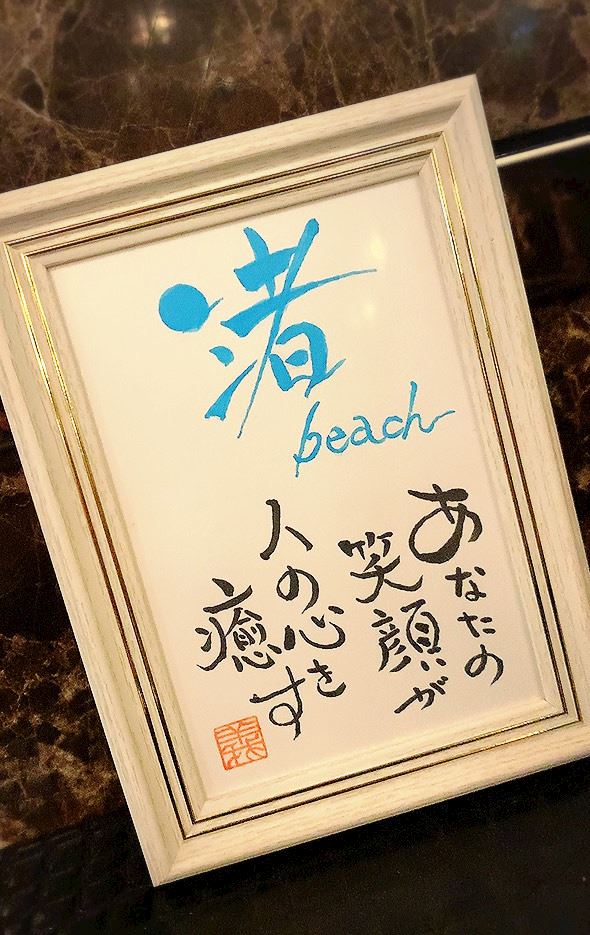 渚
beach
あなたの
笑顔が
人の心を
癒す